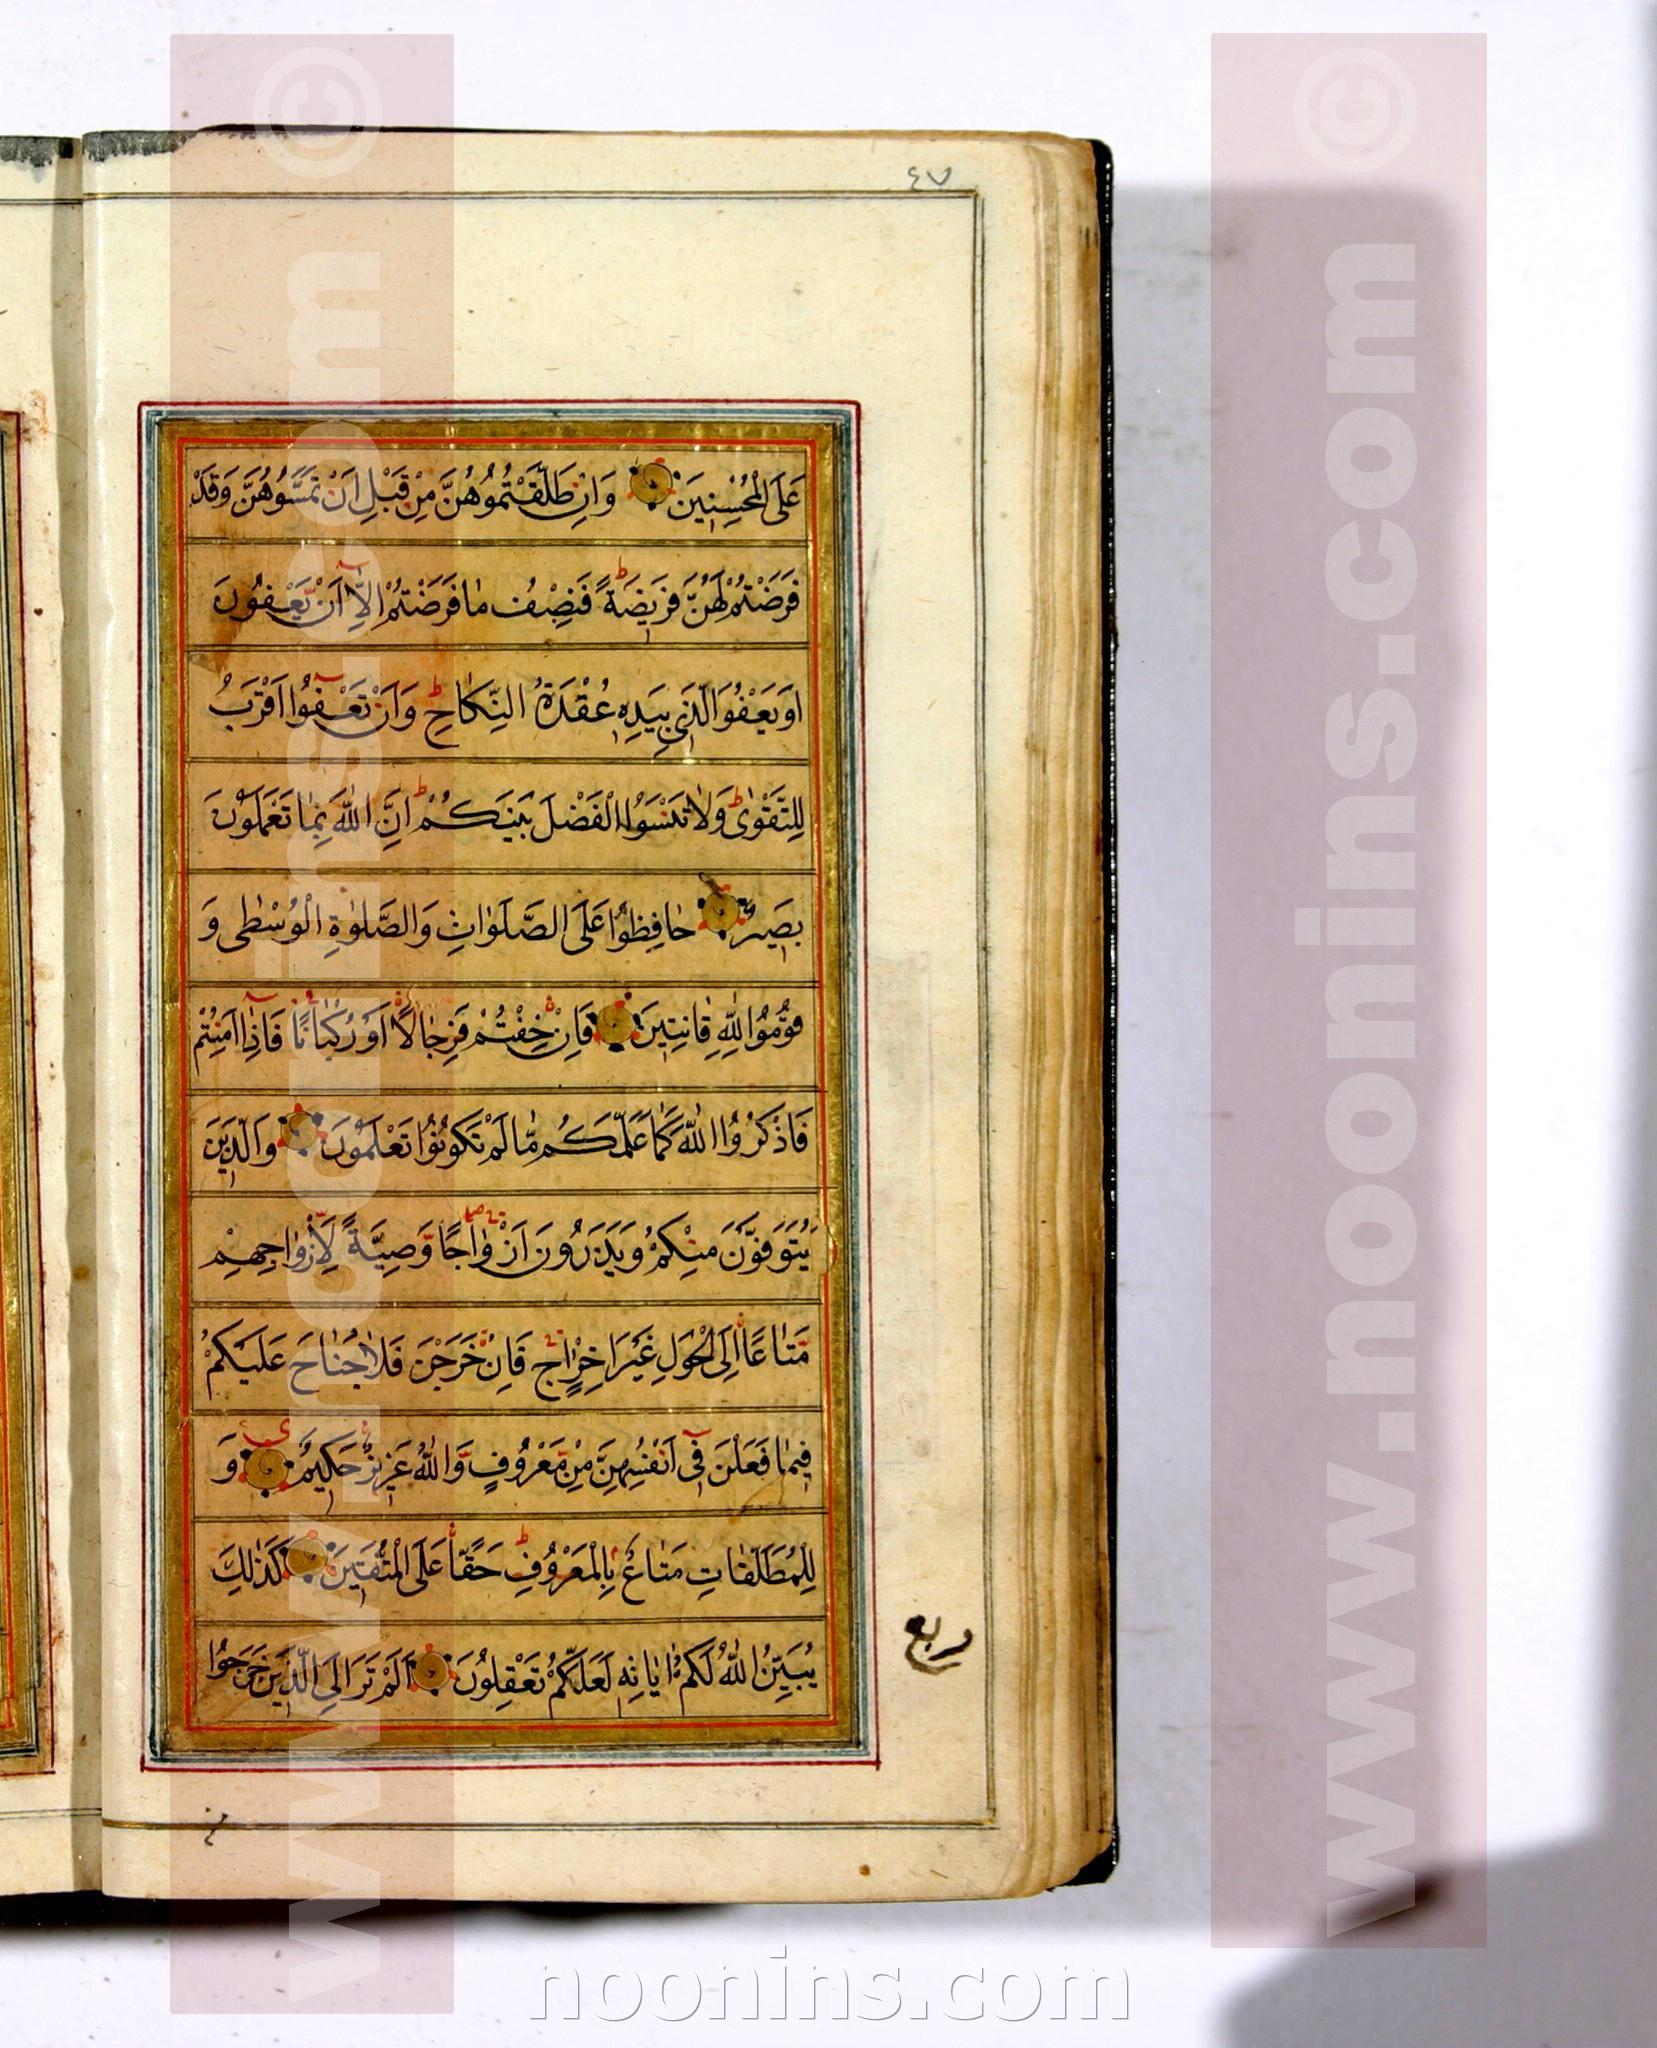 ٤٧
عَلَى الْمُحْسِنِينَ وَاِنْ طَلَّقْتُمُوهُنَّ مِنْ قَبْلِ اَنْ تَمَسُّوهُنَّ وَقَدْ
فَرَضْتُمْ لَهُنَّ فَرِيضَةً ط فَنِصْفُ مٰا فَرَضْتُمْ اِلّٰا اَنْ يَعْفُونَ
اَوْ يَعْفُوَا الَّذِى بِيَدِهٖ عُقْدَةُ النِّكٰاحِ ط وَاَنْ تَعْفُوٓا اَقْرَبُ
لِلتَّقْوٰى ط وَلٰا تَنْسَوُا الْفَضْلَ بَيْنَكُمْ ط اِنَّ اللّٰهَ بِمٰا تَعْمَلُونَ
بَصِيرٌ حٰافِظُوا عَلَى الصَّلَوٰاتِ وَالصَّلٰوةِ الْوُسْطٰى وَ
قُومُوا لِلّٰهِ قٰانِتِينَ فَاِنْ خِفْتُمْ فَرِجٰالًا اَوْ رُكْبٰانًا فَاِذٰٓا اَمِنْتُمْ
فَاذْكُرُوا اللّٰهَ كَمٰا عَلَّمَكُمْ مٰا لَمْ تَكُونُوا تَعْلَمُونَ وَالَّذِينَ
يُتَوَفَّوْنَ مِنْكُمْ وَيَذَرُونَ اَزْوٰاجًا وَصِيَّةً لِاَزْوٰاجِهِمْ
مَتٰاعًا اِلَى الْحَوْلِ غَيْرَ اِخْرٰاجٍ ج فَاِنْ خَرَجْنَ فَلٰا جُنٰاحَ عَلَيْكُمْ
فِيمٰا فَعَلْنَ فِىٓ اَنْفُسِهِنَّ مِنْ مَعْرُوفٍ وَاللّٰهُ عَزِيزٌ حَكِيمٌ وَ
لِلْمُطَلَّقٰاتِ مَتٰاعٌ بِالْمَعْرُوفِ ط حَقًّا عَلَى الْمُتَّقِينَ كَذٰلِكَ
يُبَيِّنُ اللّٰهُ لَكُمْ اٰيٰاتِهٖ لَعَلَّكُمْ تَعْقِلُونَ اَلَمْ تَرَ اِلَى الَّذِينَ خَرَجُوا
ربع
www.noonins.com ©
www.noonins.com ©
noonins.com